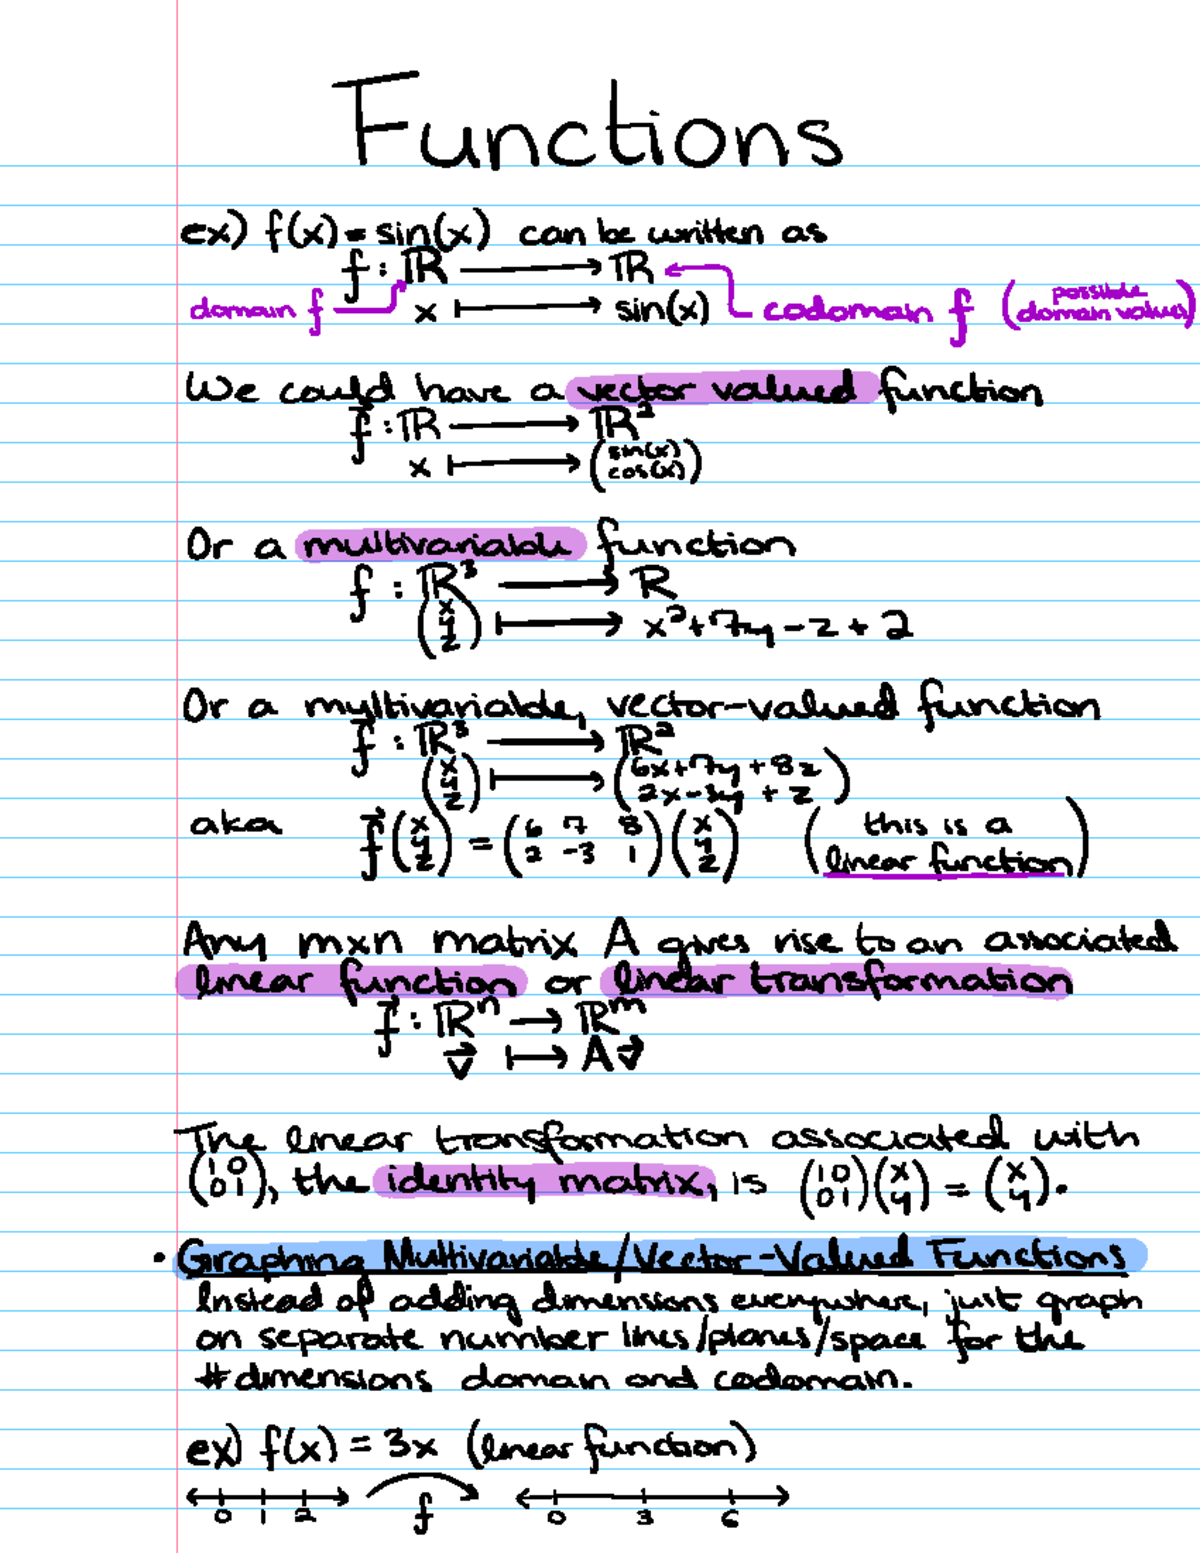 Functions
ex) f(x) = sin(x) can be written as
f : ℝ ⟶ ℝ
domain f x ⟼ sin(x) codomain f (possible domain values)
We could have a vector valued function
f⃗ : ℝ ⟶ ℝ²
x ⟼ (sin(x) cos(x))
Or a multivariable function
f : ℝ³ ⟶ ℝ
(x y z) ⟼ x²+7y-z+2
Or a multivariable, vector-valued function
f⃗ : ℝ³ ⟶ ℝ²
(x y z) ⟼ (6x+7y+8z 2x-3y+z)
aka f⃗(x y z) = (6 7 8 2 -3 1)(x y z) (this is a linear function)
Any mxn matrix A gives rise to an associated
linear function or linear transformation
f⃗ : ℝⁿ ⟶ ℝᵐ
v⃗ ⟼ Av⃗
The linear transformation associated with
(1 0 0 1), the identity matrix, is (1 0 0 1)(x y) = (x y).
• Graphing Multivariable/Vector-Valued Functions
Instead of adding dimensions everywhere, just graph
on separate number lines/planes/space for the
# dimensions domain and codomain.
ex) f(x) = 3x (linear function)
0 1 2 f 0 3 6